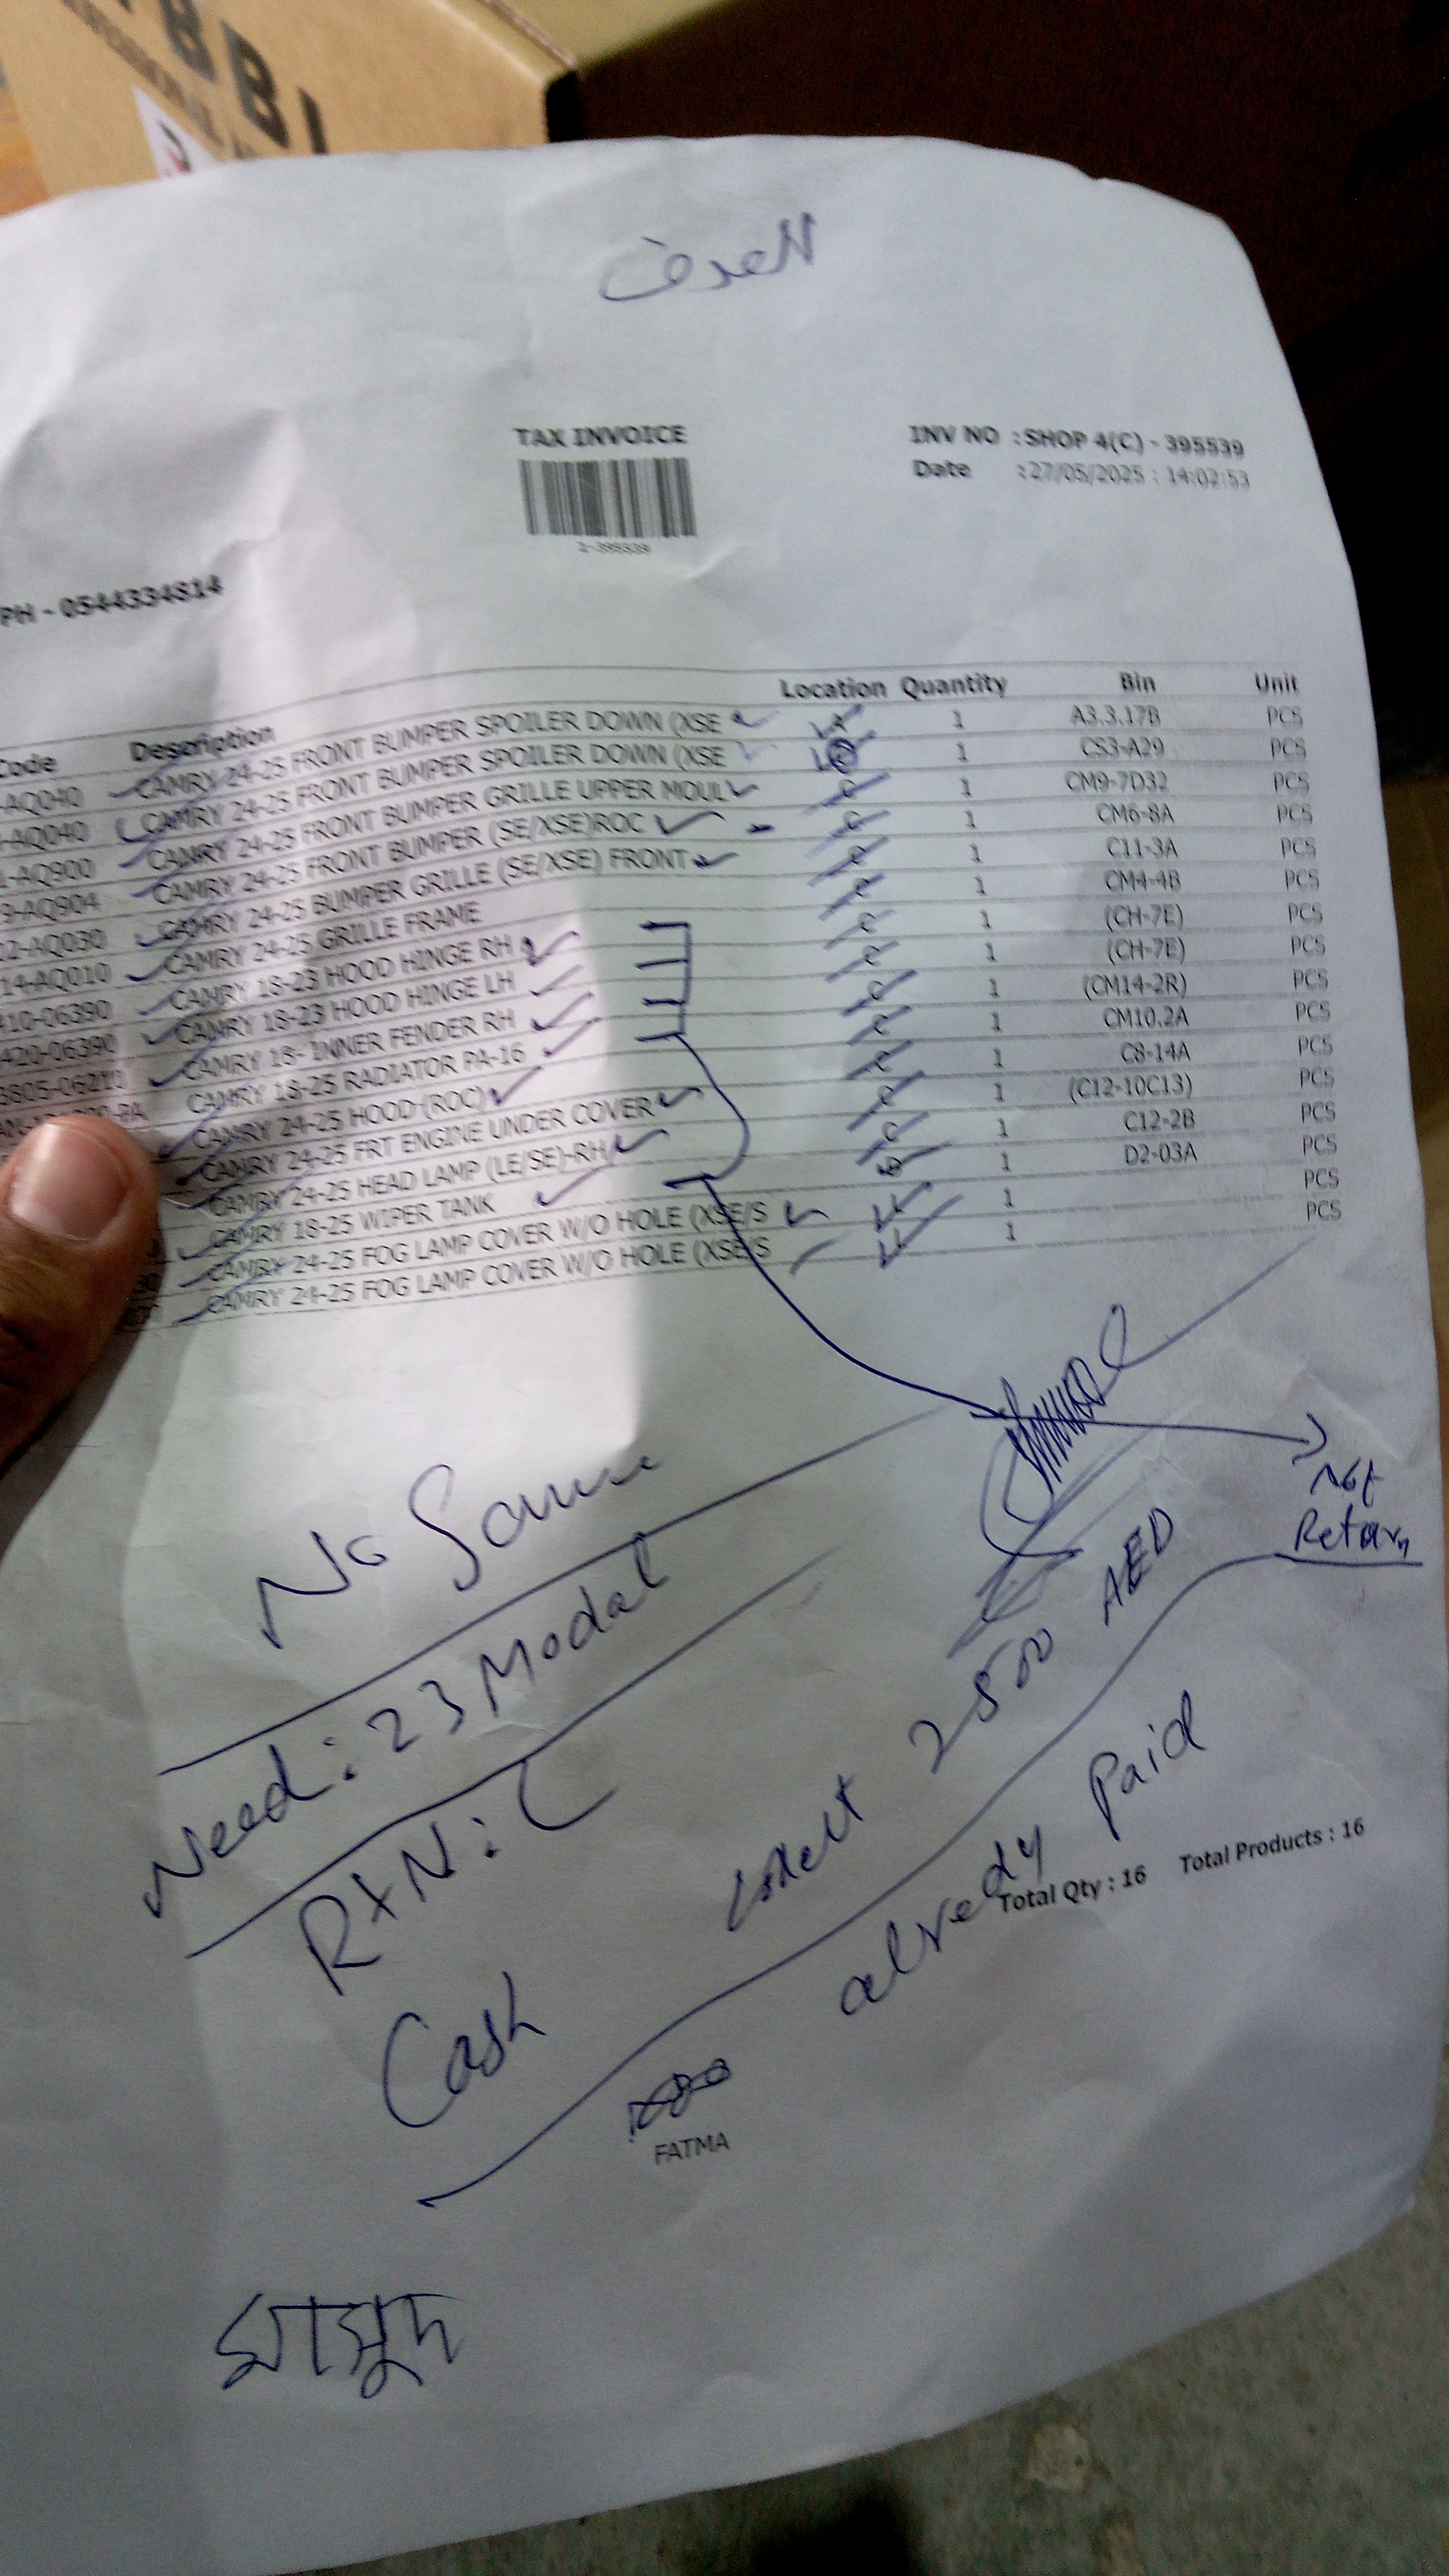 العدف
TAX INVOICE
INV NO : SHOP 4(C) - 395539
Date : 27/05/2025 : 14:02:53
1-395539
PH - 0544334814
Code Description Location Quantity Bin Unit
-AQ040 CAMRY 24-25 FRONT BUMPER SPOILER DOWN (XSE A 1 A3.3.17B PCS
-AQ040 CAMRY 24-25 FRONT BUMPER SPOILER DOWN (XSE C 1 CS3-A29 PCS
-AQ900 CAMRY 24-25 FRONT BUMPER GRILLE UPPER MOUL C 1 CM9-7D32 PCS
9-AQ904 CAMRY 24-25 FRONT BUMPER (SE/XSE)ROC C 1 CM6-8A PCS
12-AQ030 CAMRY 24-25 BUMPER GRILLE (SE/XSE) FRONT C 1 C11-3A PCS
14-AQ010 CAMRY 24-25 GRILLE FRAME C 1 CM4-4B PCS
410-06390 CAMRY 18-23 HOOD HINGE RH C 1 (CH-7E) PCS
420-06390 CAMRY 18-23 HOOD HINGE LH C 1 (CH-7E) PCS
3805-06210 CAMRY 18- INNER FENDER RH C 1 (CM14-2R) PCS
CAMRY 18-25 RADIATOR PA-16 C 1 CM10.2A PCS
CAMRY 24-25 HOOD (ROC) C 1 C8-14A PCS
CAMRY 24-25 FRT ENGINE UNDER COVER C 1 (C12-10C13) PCS
CAMRY 24-25 HEAD LAMP (LE/SE)-RH C 1 C12-2B PCS
CAMRY 18-25 WIPER TANK D 1 D2-03A PCS
CAMRY 24-25 FOG LAMP COVER W/O HOLE (XSE/S 1 PCS
CAMRY 24-25 FOG LAMP COVER W/O HOLE (XSE/S 1 PCS
Not
Retarn
No Same
Need: 23 Modal
RtN:
Cash 2500 AED
already Paid
Total Qty : 16 Total Products : 16
FATMA
মাসুদ